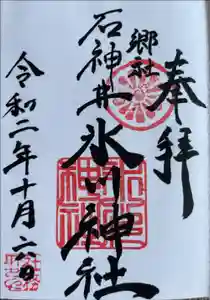 奉拝
郷社
石神井氷川神社
令和二年十月六日